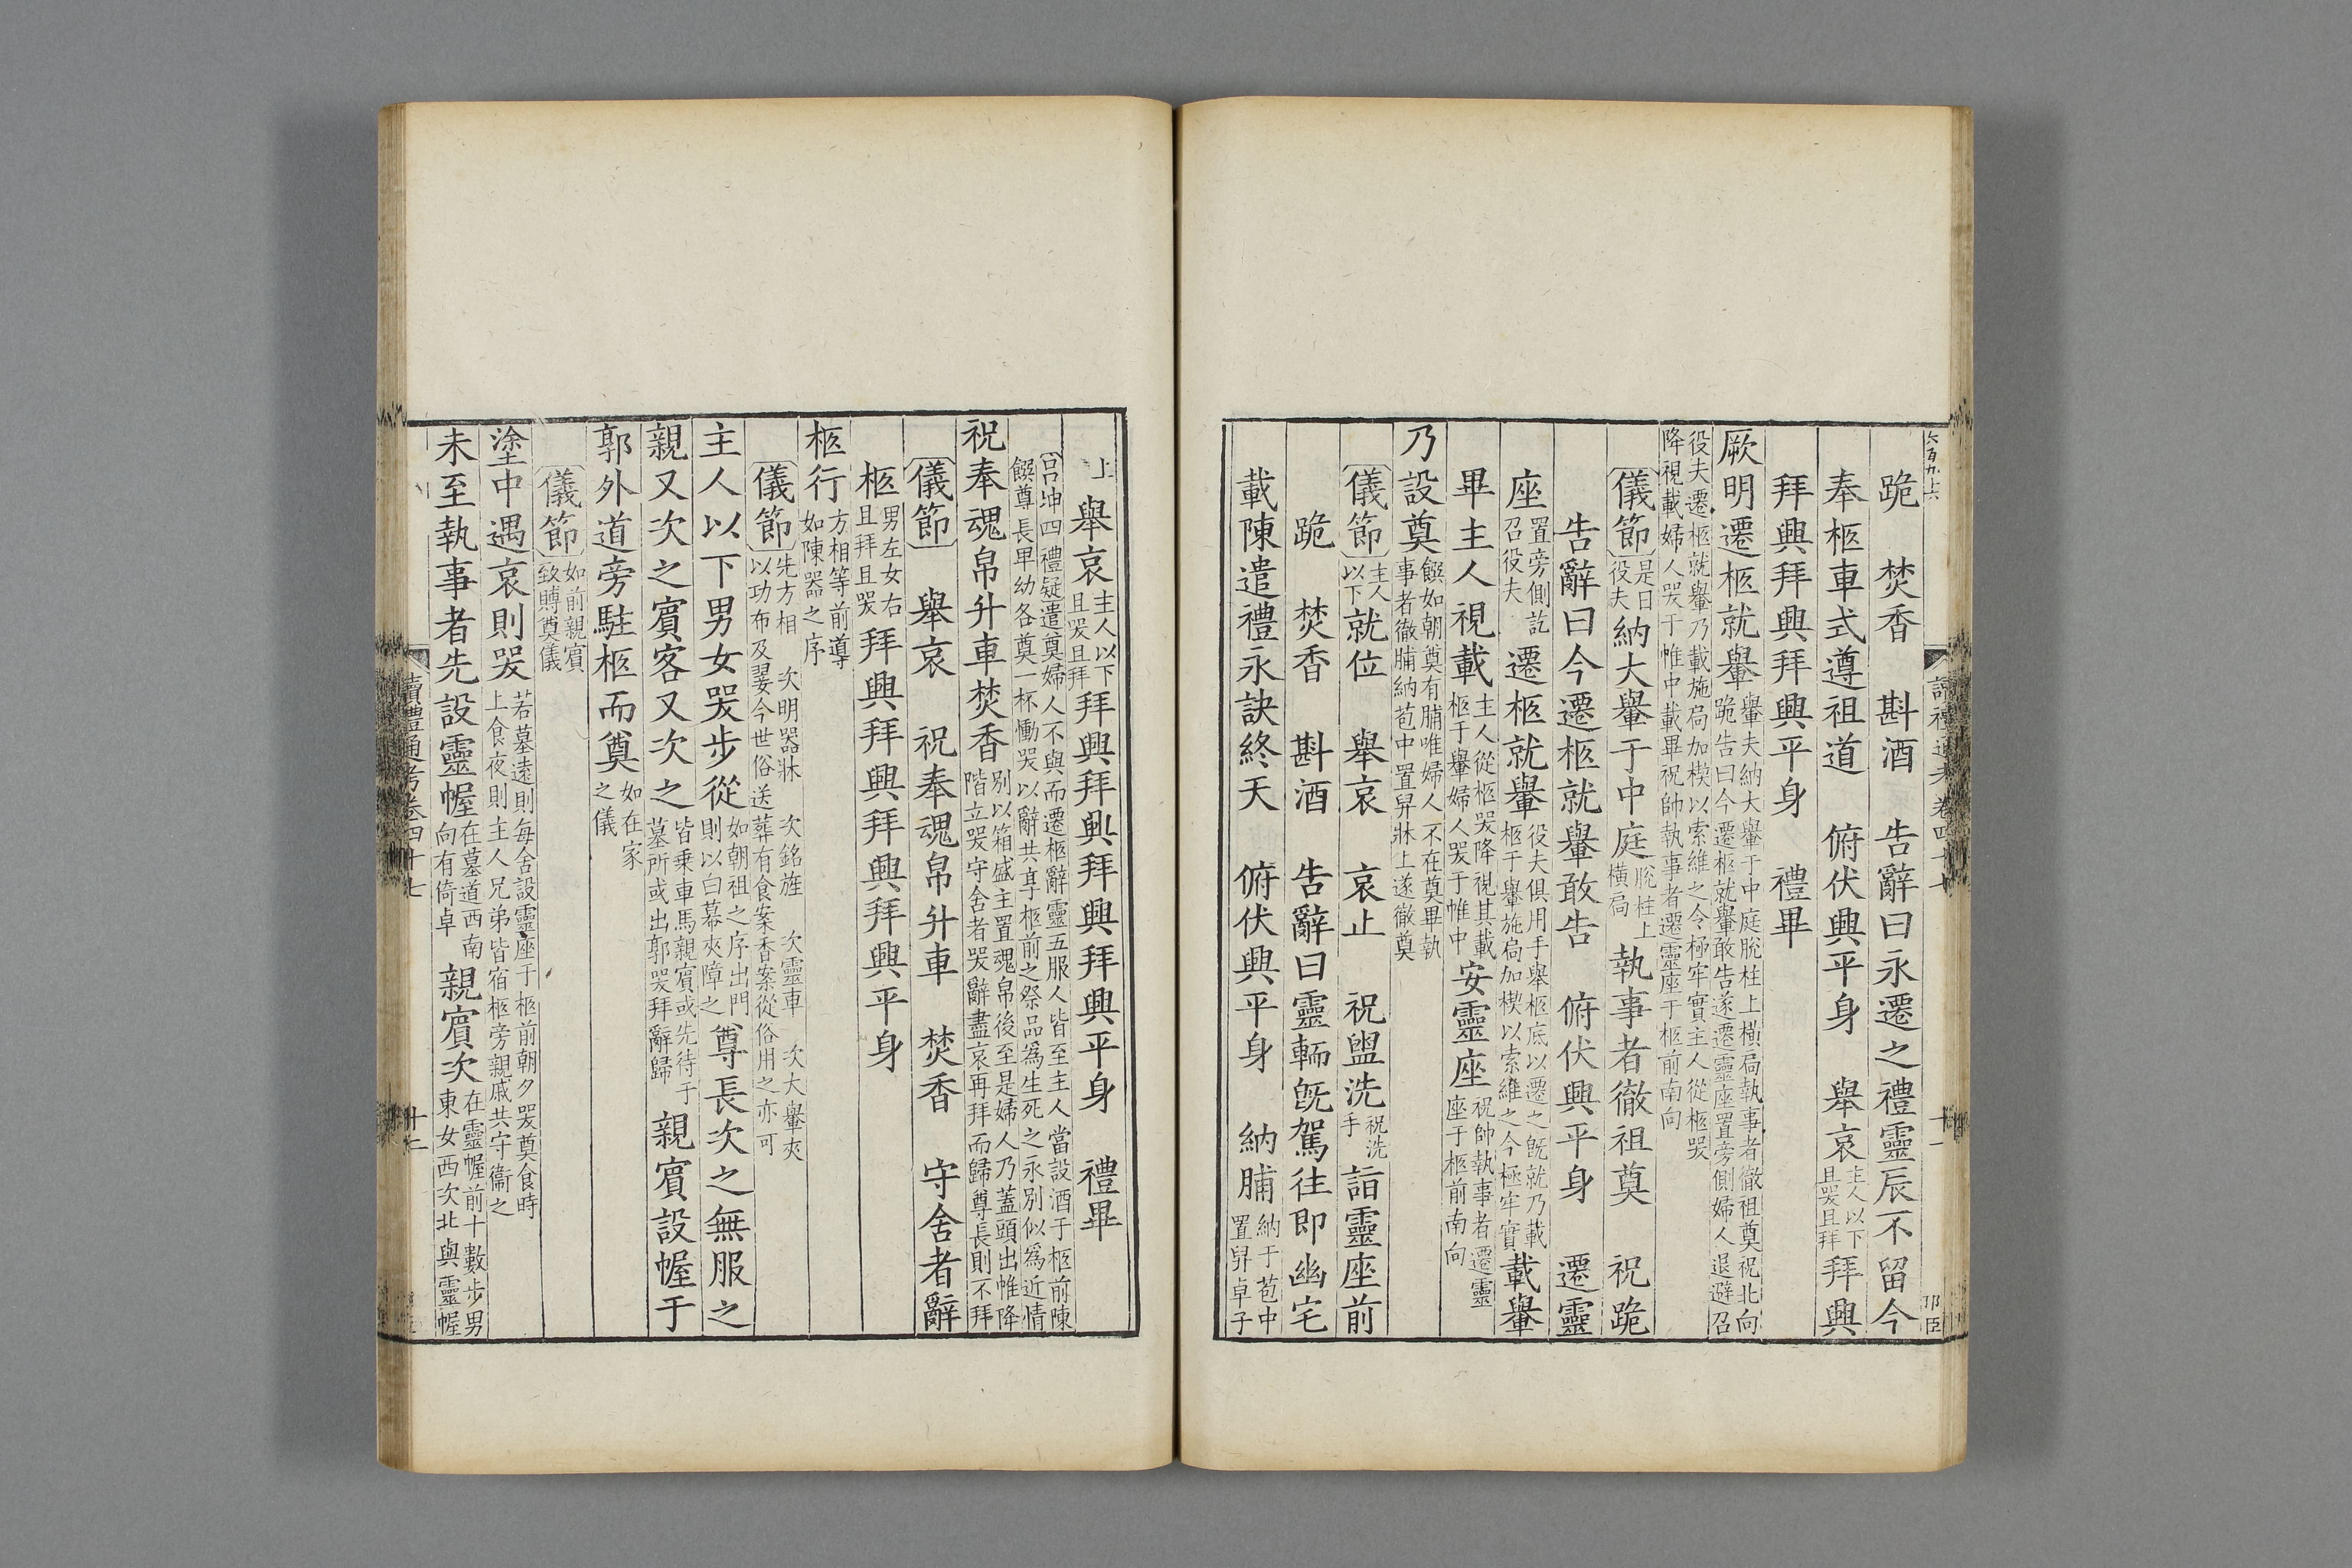 六百九十六
讀禮通考卷四十七
十一
跪 焚香 斟酒 告辭曰永遷之禮靈辰不留今
奉柩車式遵祖道 俯伏興平身 舉哀主人以下且哭且拜拜興
拜興拜興拜興平身 禮畢
厥明遷柩就轝轝夫納大轝于中庭脫柱上橫扃執事者徹祖奠祝北向跪告曰今遷柩就轝敢告遂遷靈座置旁側婦人退避召
役夫遷柩就轝乃載施扃加楔以索維之令極牢實主人從柩哭降視載婦人哭于帷中載畢祝帥執事者遷靈座于柩前南向
儀節是日役夫納大轝于中庭脫柱上橫扃執事者徹祖奠 祝跪
告辭曰今遷柩就轝敢告 俯伏興平身 遷靈
座置旁側訖召役夫 遷柩就轝役夫俱用手舉柩底以遷之旣就乃載柩于轝施扃加楔以索維之令極牢實載轝
畢主人視載主人從柩哭降視其載柩于轝婦人哭于帷中安靈座祝帥執事者遷靈座于柩前南向
乃設奠饌如朝奠有脯唯婦人不在奠畢執事者徹脯納苞中置舁牀上遂徹奠
儀節主人以下就位 舉哀 哀止 祝盥洗祝洗手詣靈座前
跪 焚香 斟酒 告辭曰靈輀旣駕往卽幽宅
載陳遣禮永訣終天 俯伏興平身 納脯納于苞中置舁卓子
上 舉哀主人以下且哭且拜拜興拜興拜興拜興平身 禮畢
呂坤四禮疑遣奠婦人不與而遷柩辭靈五服人皆至主人當設酒于柩前陳饌尊長卑幼各奠一杯慟哭以辭共享柩前之祭品爲生死之永別似爲近情
祝奉魂帛升車焚香別以箱盛主置魂帛後至是婦人乃蓋頭出帷降階立哭守舍者哭辭盡哀再拜而歸尊長則不拜
儀節 舉哀 祝奉魂帛升車 焚香 守舍者辭
柩男左女右且拜且哭拜興拜興拜興拜興平身
柩行方相等前導如陳器之序
儀節先方相 次明器牀 次銘旌 次靈車 次大轝夾以功布及翣今世俗送葬有食案香案從俗用之亦可
主人以下男女哭步從如朝祖之序出門則以白幕夾障之尊長次之無服之
親又次之賓客又次之皆乘車馬親賓或先待于墓所或出郭哭拜辭歸 親賓設幄于
郭外道旁駐柩而奠如在家之儀
儀節如前親賓致賻奠儀
塗中遇哀則哭若墓遠則每舍設靈座于柩前朝夕哭奠食時上食夜則主人兄弟皆宿柩旁親戚共守衞之
未至執事者先設靈幄在墓道西南向有倚卓 親賓次在靈幄前十數步男東女西次北與靈幄
讀禮通考卷四十七
十二